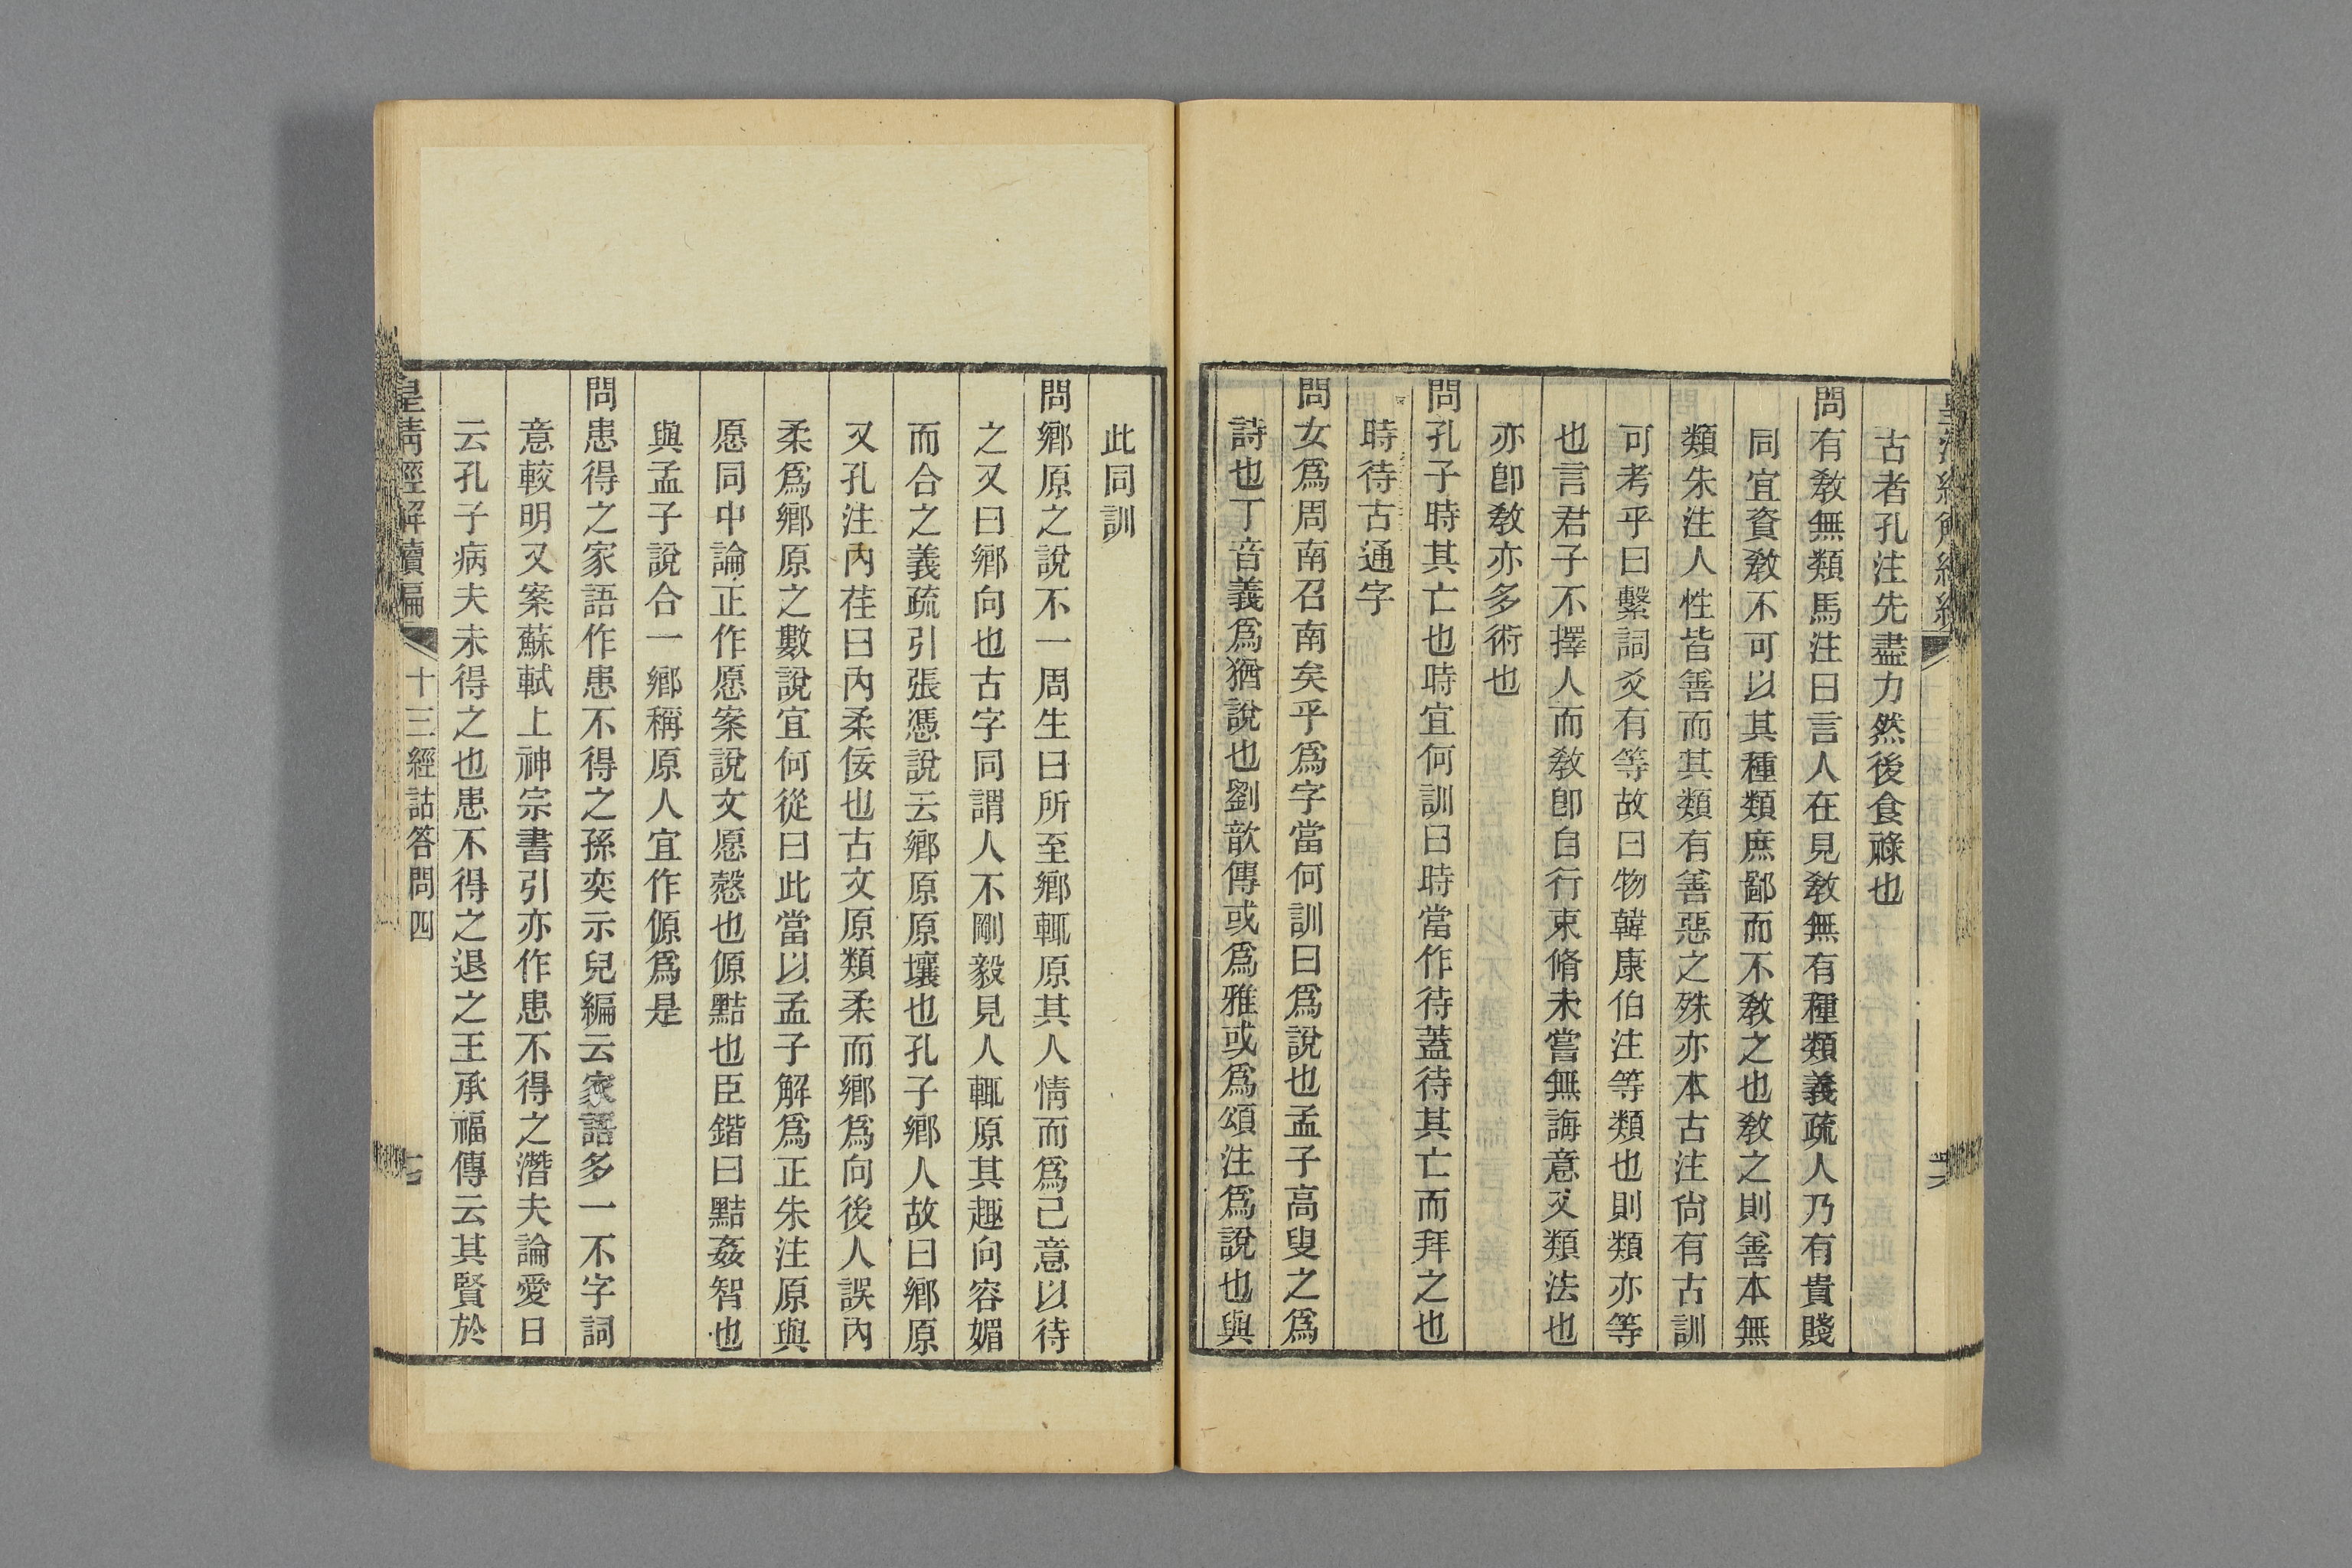 古者孔注先盡力然後食祿也
問有敎無類馬注曰言人在見敎無有種類義疏人乃有貴賤
同宜資敎不可以其種類庶鄙而不敎之也敎之則善本無
類朱注人性皆善而其類有善惡之殊亦本古注尙有古訓
可考乎曰繫詞爻有等故曰物韓康伯注等類也則類亦等
也言君子不擇人而敎卽自行束脩未嘗無誨意又類法也
亦卽敎亦多術也
問孔子時其亡也時宜何訓曰時當作待蓋待其亡而拜之也
時待古通字
問女爲周南召南矣乎爲字當何訓曰爲說也孟子高叟之爲
詩也丁音義爲猶說也劉歆傳或爲雅或爲頌注爲說也與
此同訓
問鄕原之說不一周生曰所至鄕輒原其人情而爲己意以待
之又曰鄕向也古字同謂人不剛毅見人輒原其趣向容媚
而合之義疏引張憑說云鄕原原壤也孔子鄕人故曰鄕原
又孔注內荏曰內柔佞也古文原類柔而鄕爲向後人誤內
柔爲鄕原之數說宜何從曰此當以孟子解爲正朱注原與
愿同中論正作愿案說文愿愨也傆黠也臣鍇曰黠姦智也
與孟子說合一鄕稱原人宜作傆爲是
問患得之家語作患不得之孫奕示兒編云家語多一不字詞
意較明又案蘇軾上神宗書引亦作患不得之潛夫論愛日
云孔子病夫未得之也患不得之退之王承福傳云其賢於
皇清經解續編 十三經詁答問四 七